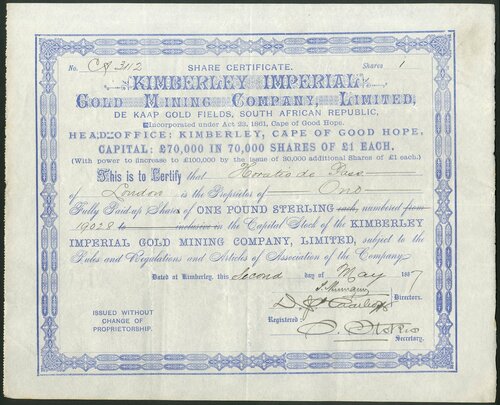 SHARE CERTIFICATE.
No. 3112 Shares 1
KIMBERLEY IMPERIAL
GOLD MINING COMPANY, LIMITED,
DE KAAP GOLD FIELDS, SOUTH AFRICAN REPUBLIC,
Incorporated under Act 23, 1861, Cape of Good Hope.
HEAD OFFICE: KIMBERLEY, CAPE OF GOOD HOPE.
CAPITAL: £70,000 IN 70,000 SHARES OF £1 EACH.
(With power to increase to £100,000 by the issue of 30,000 additional Shares of £1 each.)
This is to Certify that Horatio de Pass
of London is the Proprietor of One
Fully Paid up Shares of ONE POUND STERLING each, numbered from
19028 to inclusive in the Capital Stock of the KIMBERLEY
IMPERIAL GOLD MINING COMPANY, LIMITED, subject to the
Rules and Regulations and Articles of Association of the Company.
Dated at Kimberley, this Second day of May 1887
Directors.
ISSUED WITHOUT
CHANGE OF
PROPRIETORSHIP.
Registered
Secretary.